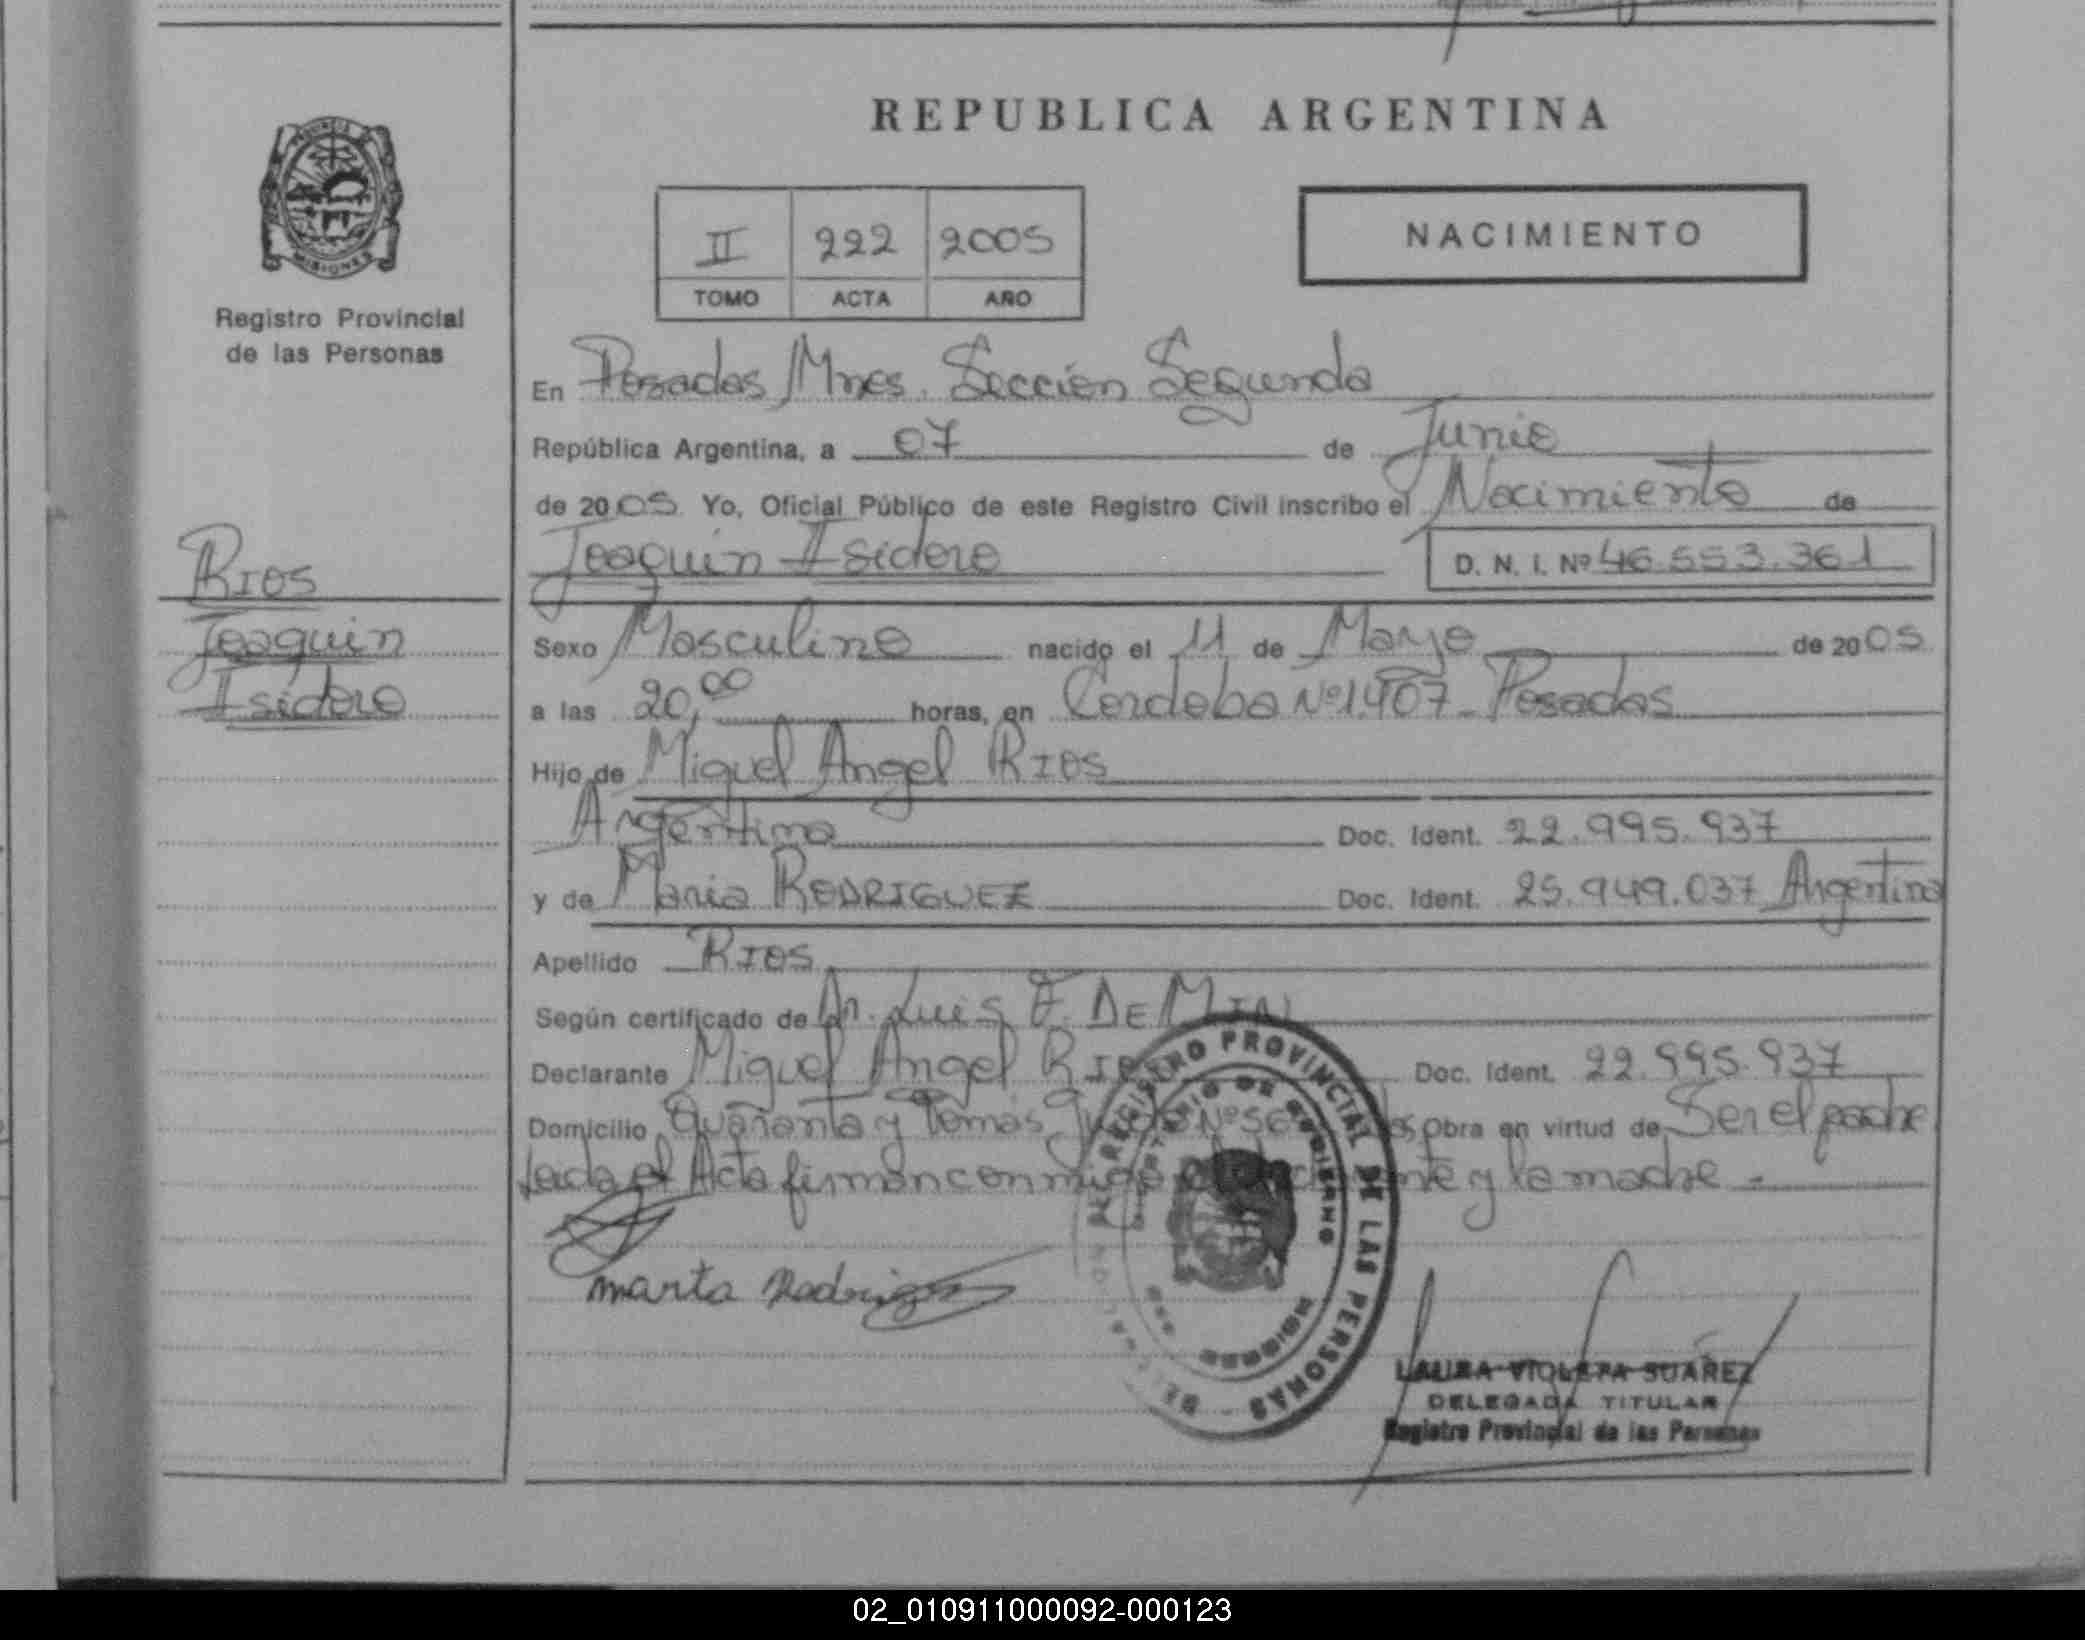 REPUBLICA ARGENTINA
PROVINCIA DE
MISIONES
Registro Provincial
de las Personas
II 222 2005
TOMO ACTA AÑO
NACIMIENTO
En Posadas Mnes. Sección Segunda
República Argentina, a 07 de Junio
de 2005 Yo, Oficial Público de este Registro Civil inscribo el Nacimiento de
Joaquin Isidoro D. N. I. Nº 46.553.361
RIOS
Joaquin
Isidoro
Sexo Masculino nacido el 11 de Mayo de 2005
a las 20,00 horas, en Cordoba Nº 1.407 - Posadas
Hijo de Miguel Angel RIOS
Argentino Doc. Ident. 22.995.937
y de Maria RODRIGUEZ Doc. Ident. 25.949.037 Argentina
Apellido RIOS
Según certificado de Dr. Luis F. DE MIN
Declarante Miguel Angel Doc. Ident. 22.995.937
Domicilio y Tomás Obra en virtud de Ser el padre
Leida el Acta firman conmigo y la madre -
marta Rodriguez
REGISTRO PROVINCIAL DE LAS PERSONAS
MINISTERIO DE GOBIERNO
MISIONES
LAURA VIOLETA SUAREZ
DELEGADA TITULAR
Registro Provincial de las Personas
02_010911000092-000123